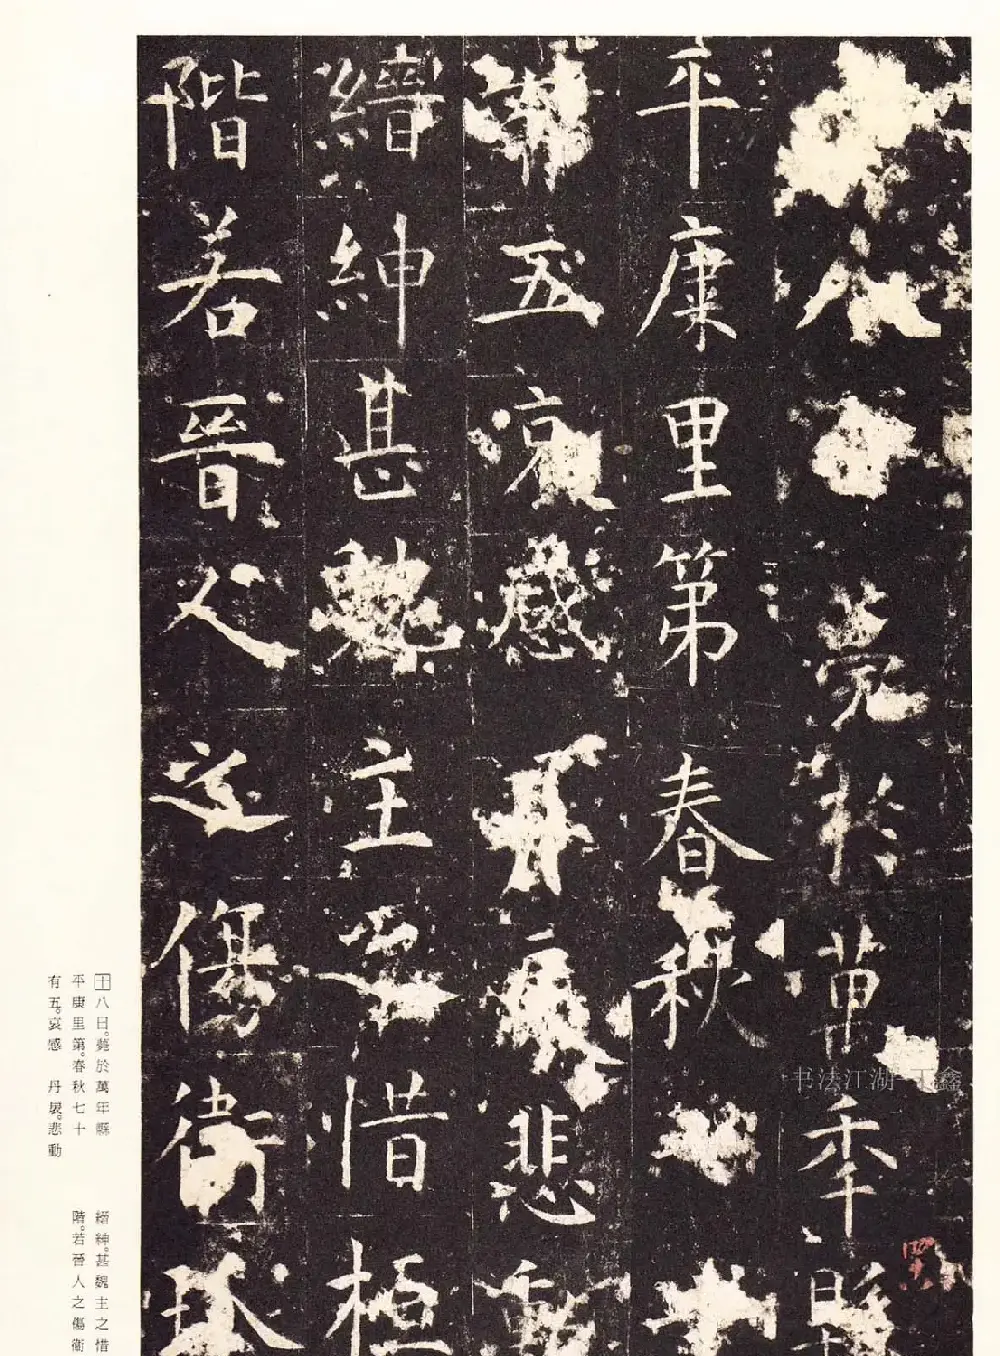 八日薨於萬年縣
平康里第春秋七十
有五哀感丹扆悲動
縉紳甚魏主之惜桓
階若晉人之傷衛玠
十八日。薨於萬年縣
平康里第。春秋七十
有五。哀感 丹扆。悲動
縉紳。甚魏主之惜
階。若晉人之傷衛
书法江湖 王鑫